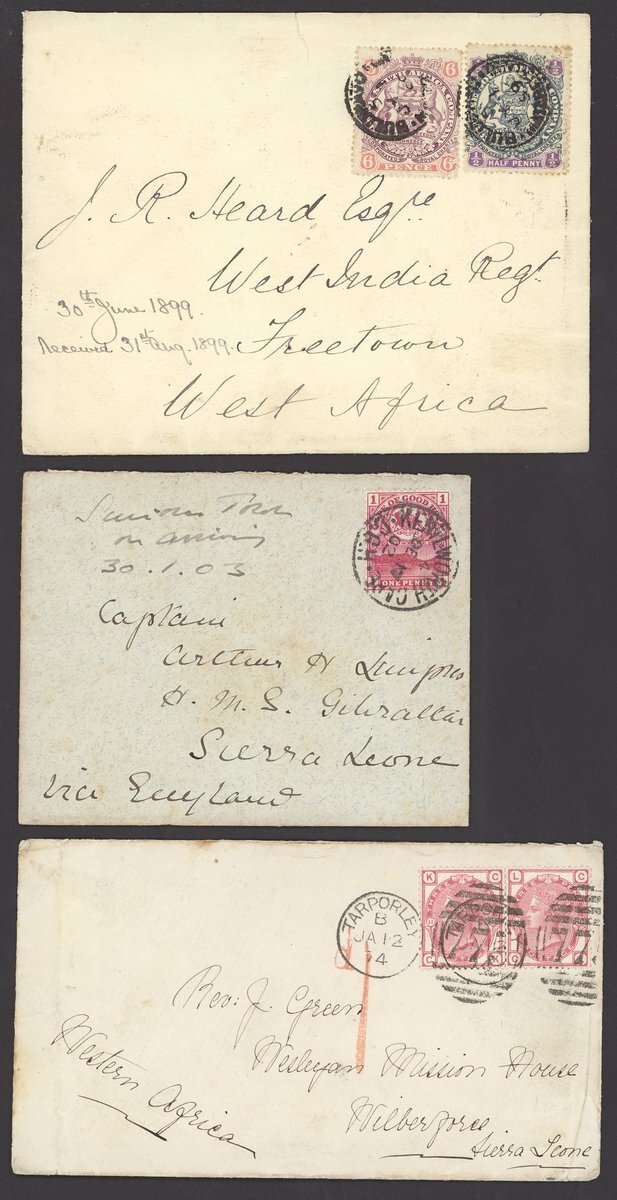 6 6
6 PENCE 6
½ ½
½ HALF PENNY ½
AFRICA COMPANY
J. R. Heard Esqre.
West India Regt.
30th June 1899.
Received 31st Aug. 1899.
Freetown
West Africa
1 OF GOOD 1
ONE PENNY
KENILWORTH
on
30.1.03
Captain
Arthur H
H. M. S. Gibraltar
Sierra Leone
via England
TARPORLEY
B
JA 12
74
K C
C K
L C
C L
Rev: J. Green
Wesleyan Mission House
Western Africa
Wilberforce
Sierra Leone